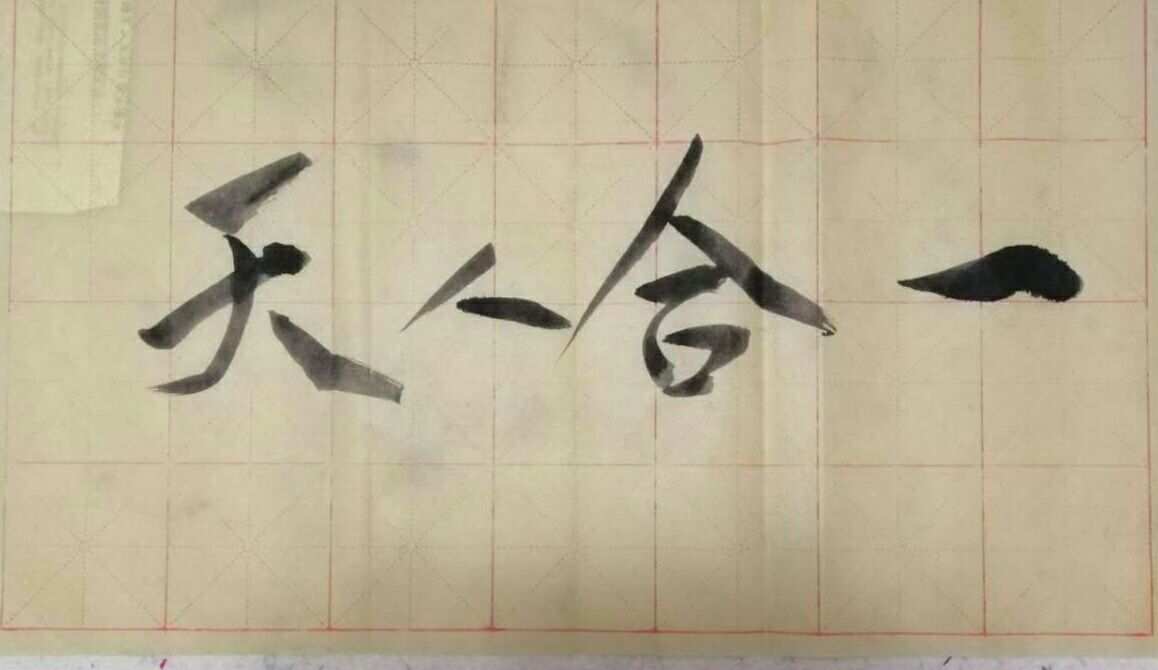 天人合一